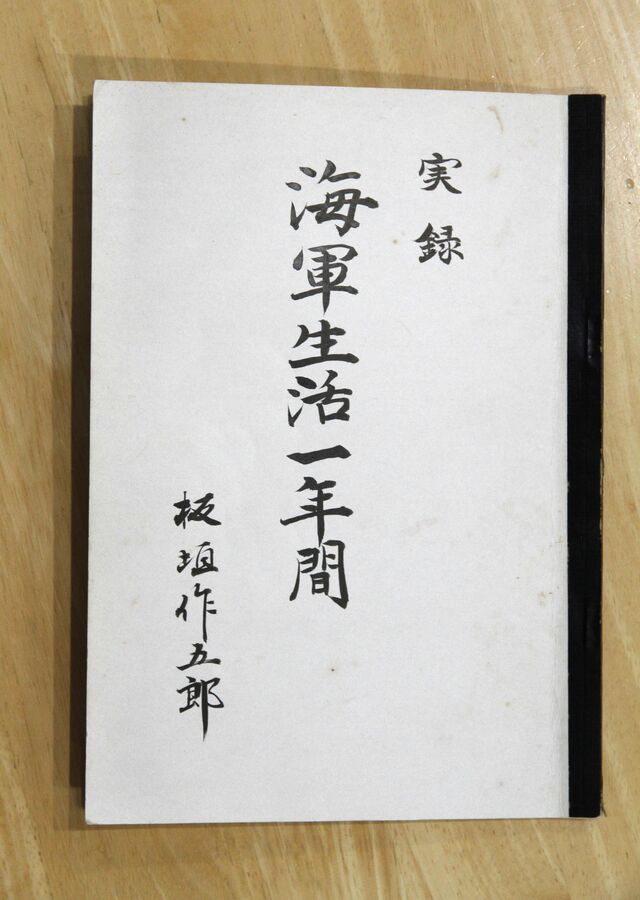 実録
海軍生活一年間
板垣作五郎